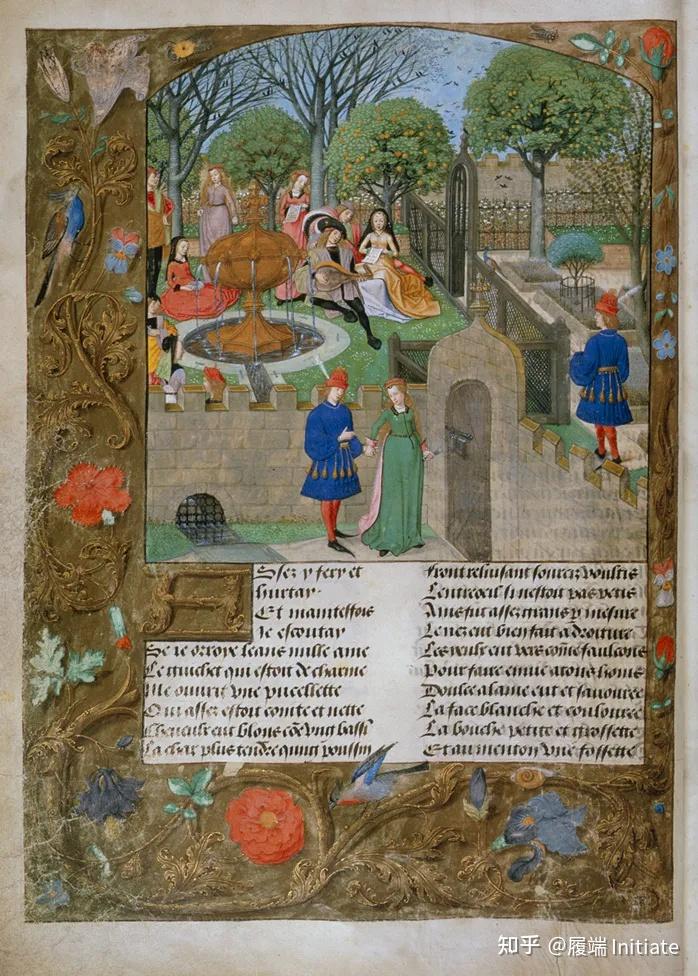 Assez y fery et
hurtay
Et maintesfois
Je escoutay
Se ie orroye leans nulle ame
Le guichet qui estoit de charme
Me ouurit vne pucellette
Qui assez estoit cointe et nette
Cheueulx eut blons cõe vng bassi
La char plus tendre qung poussin
Front reluisant sourcez voultis
Lentreoeil si nestoit pas petis
Ains fut assez grans p mesure
Le nez eut bien fait a droiture
Les yeulx eut vers come faulcons
Pour faire enuie a tous homs
Doulce alaine eut et sauouree
La face blanche et coulouree
La bouche petite et grossette
Et au menton vne fossette
知乎 @履端 Initiate